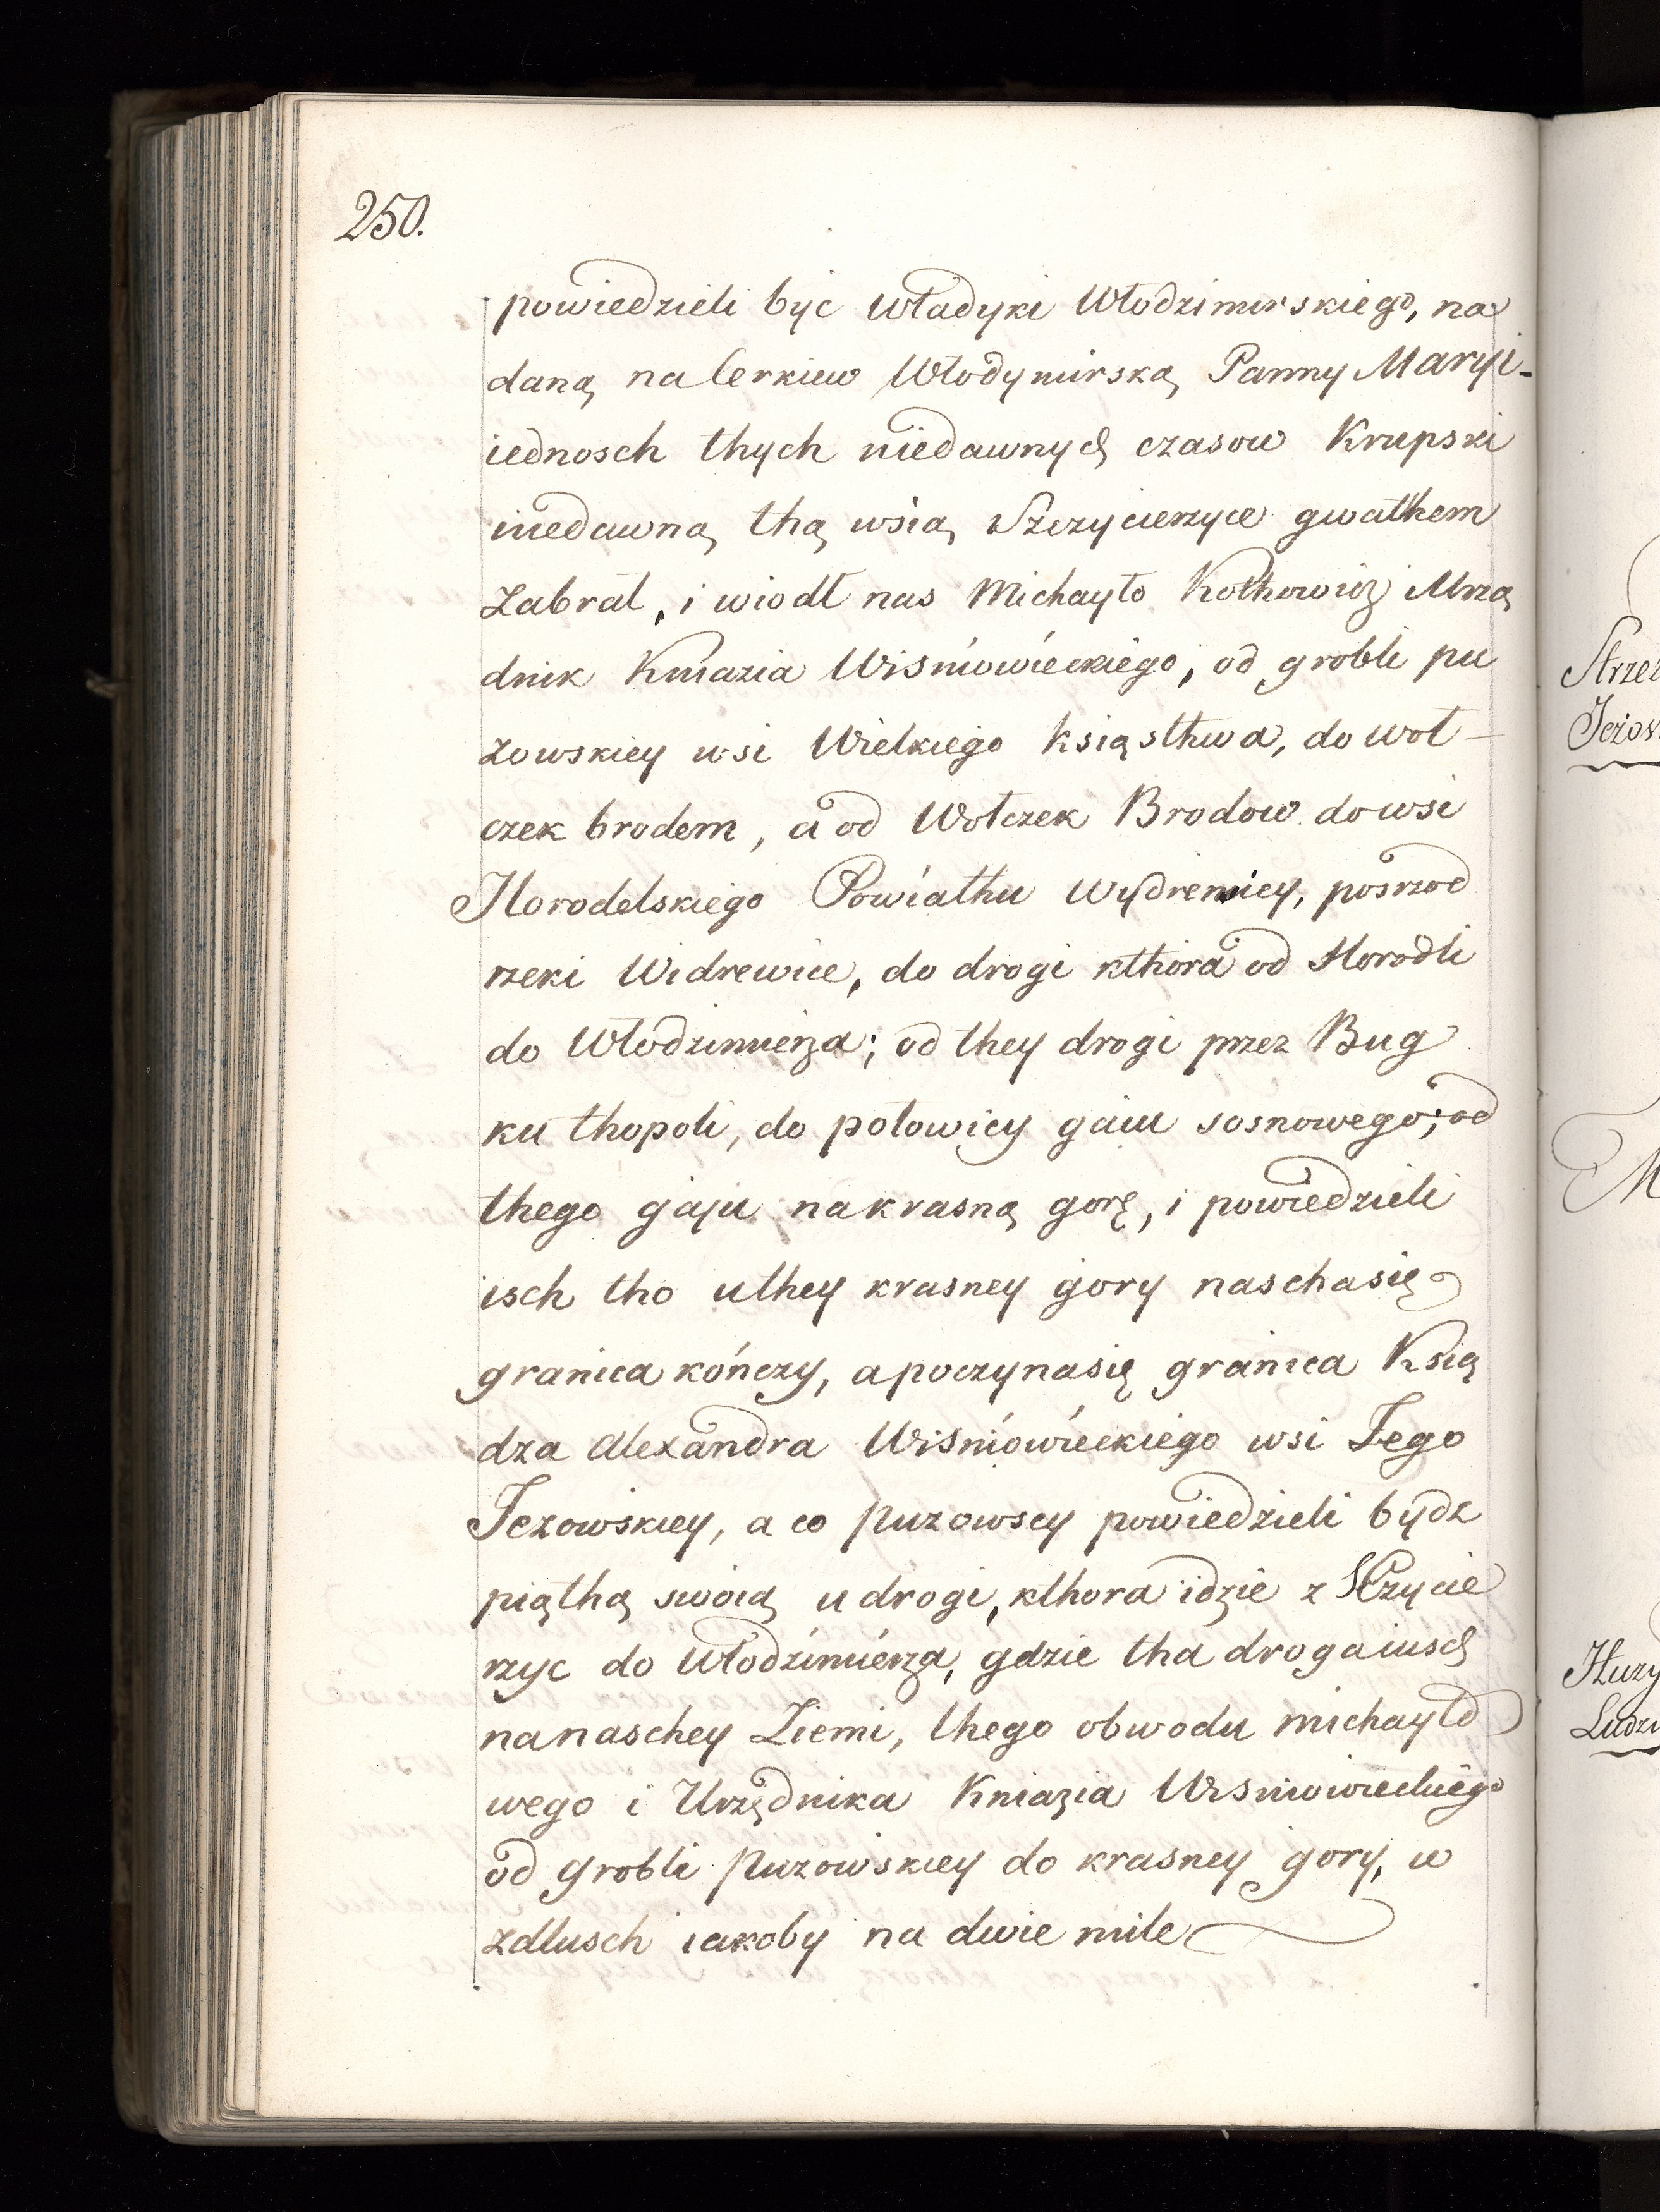 250.
powiedzieli byc Władyki Włodzimirskiego, na
daną na Cerkiew Włodymirską Panny Maryi-
iednosch thych niedawnych czasow Krupski
niedawną thą wsią Szczycierzyce gwałthem
zabrał, i wiodł nas Michayło Kothowicz Urzą
dnik Kniazia Wisniowieckiego, od grobli pu
zowskiey wsi Wielkiego Księsthwa, do woł-
czek brodem, a od Wołczek Brodow do wsi
Horodelskiego Powiathu Wydreniey, posrzod
rzeki Widrewice, do drogi kthora od Horodli
do Włodzimierza; od they drogi przez Bug
ku thopoli, do połowicy gaiu sosnowego; od
thego gaju na krasną gorę, i powiedzieli
isch tho uthey krasney gory naschasię
granica kończy, apoczynasię granica Ksią
dza Alexandra Wisniowieckiego wsi Jego
Jezowskiey, a co Puzowscy powiedzieli bydz
piąthą swoią u drogi, kthora idzie z Sczycie
rzyc do Włodzimierza, gdzie tha drogaiusch
nanaschey Ziemi, thego obwodu michayło
wego i Urzędnika Kniazia Wisniowieckiego
od grobli Puzowskiey do krasney gory, w
zdlusch iakoby na dwie mile
Jeżow
M